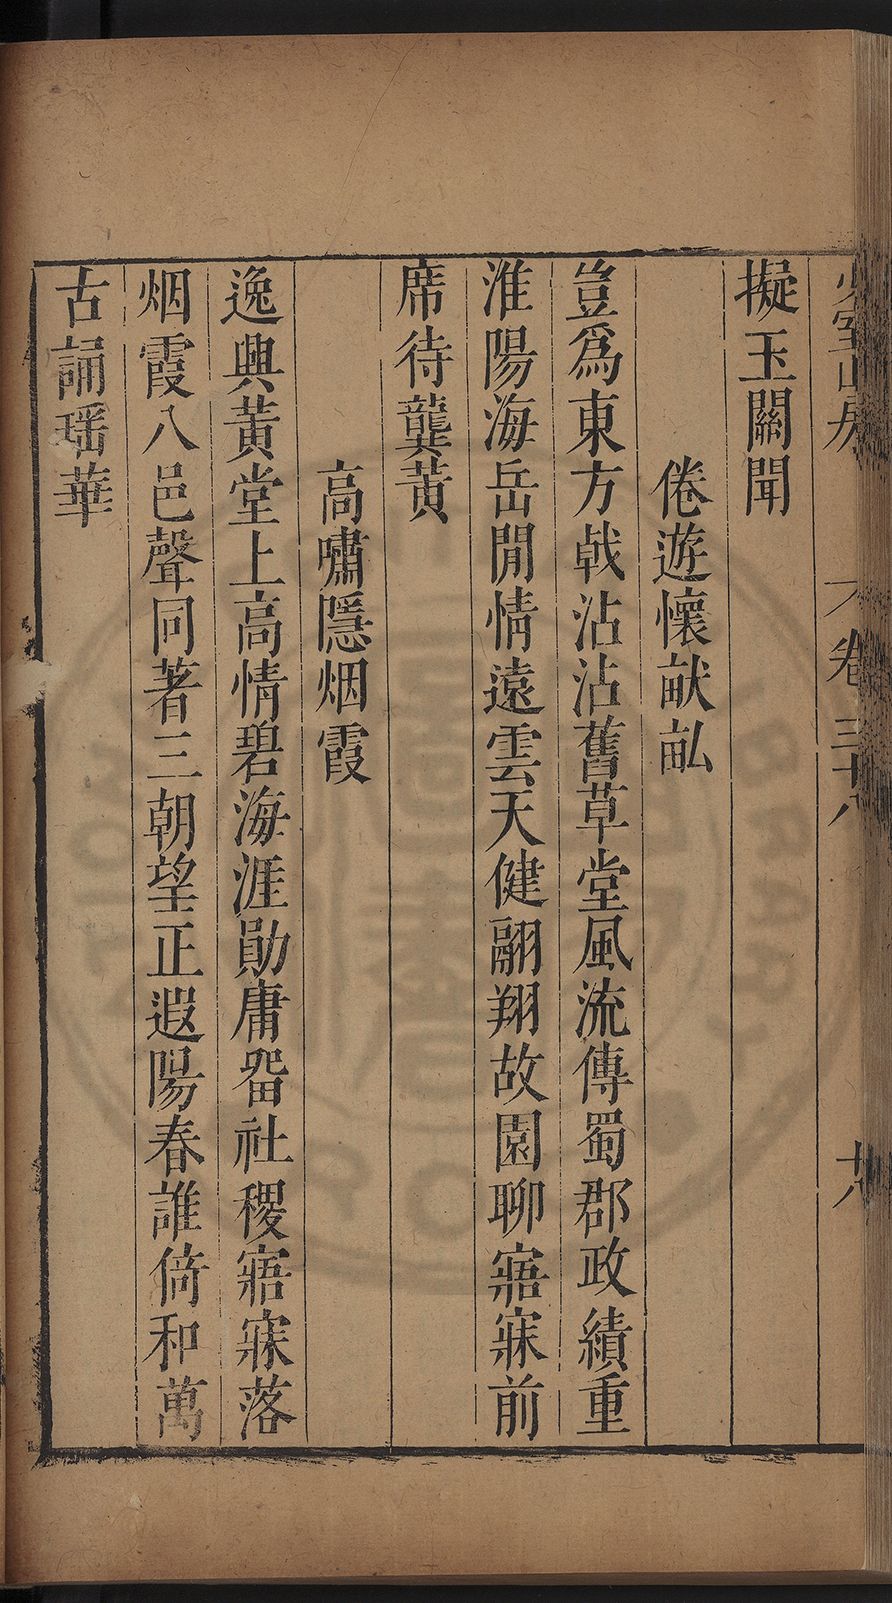 少室山房 卷三十八 十八
擬玉關聞
倦遊懷畎畆
豈爲東方戟沾沾舊草堂風流傳蜀郡政績重
淮陽海岳閒情遠雲天健翮翔故園聊寤寐前
席待龔黃
高嘯隱烟霞
逸興黃堂上高情碧海涯勛庸畱社稷寤寐落
烟霞八邑聲同著三朝望正遐陽春誰倚和萬
古誦瑶華